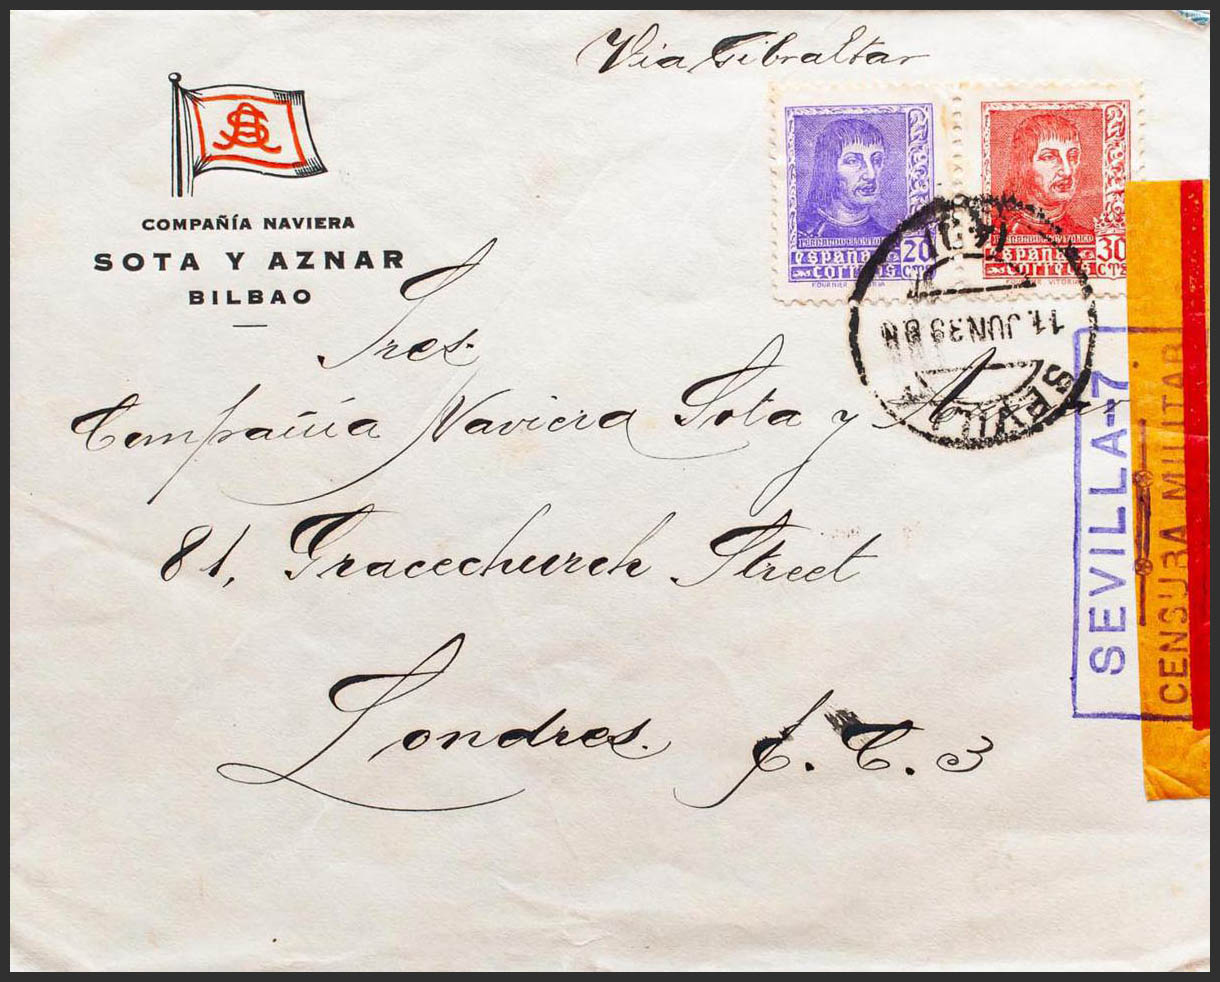 Via Gibraltar
COMPAÑÍA NAVIERA
SOTA Y AZNAR
BILBAO
FERNANDO EL CATOLICO
ESPAÑA
CORREOS
20 CTS
FOURNIER VITORIA
FERNANDO EL CATOLICO
ESPAÑA
CORREOS
30 CTS
FOURNIER VITORIA
11.JUN.39
SEVILLA
Sres.
Compañia Naviera Sota y Aznar
81, Gracechurch Street
Londres. E.C.3
SEVILLA-7
CENSURA MILITAR